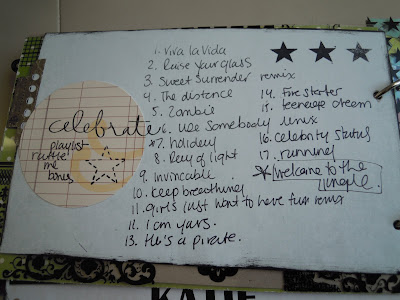 1. Viva la Vida
2. Raise your glass
3. Sweet Surrender remix
4. The distance
5. Zombie
6. use somebody remix
*7. holiday
8. Ray of light
9. Invincable
10. keep breathing
11. girls just want to have fun remix
12. I am yours.
13. He's a pirate.
14. Fire starter
15. teenage dream
16. Celebrity status
17. running
* Welcome to the
Jungle.
celebrate
playlist
rattle
me
bones
KATIE